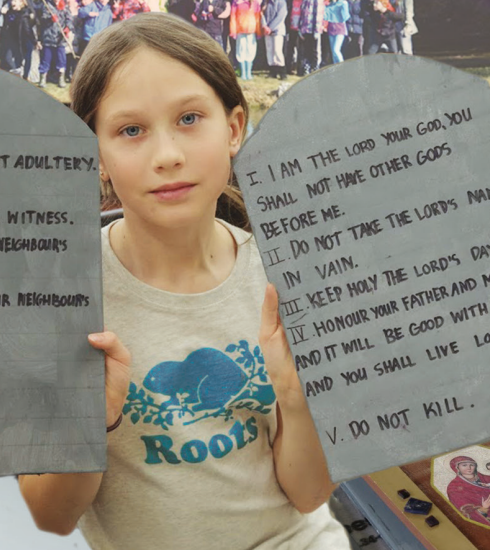 T ADULTERY.
WITNESS.
NEIGHBOUR'S
R NEIGHBOUR'S
I. I AM THE LORD YOUR GOD, YOU
SHALL NOT HAVE OTHER GODS
BEFORE ME.
II. DO NOT TAKE THE LORD'S NA
IN VAIN.
III. KEEP HOLY THE LORD'S DA
IV. HONOUR YOUR FATHER AND M
AND IT WILL BE GOOD WITH
AND YOU SHALL LIVE LO
V. DO NOT KILL.
Roots